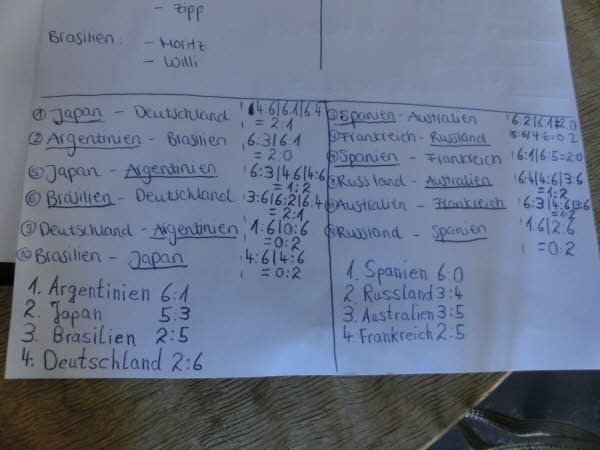 - Zipp
Brasilien: - Moritz
- Willi
① Japan - Deutschland 4:6|6:1|6:4
= 2:1
② Argentinien - Brasilien 6:3|6:1
= 2:0
⑤ Japan - Argentinien 6:3|4:6|4:6
= 1:2
⑥ Brasilien - Deutschland 3:6|6:2|6:4
= 2:1
⑨ Deutschland - Argentinien 1:6|0:6
= 0:2
⑩ Brasilien - Japan 4:6|4:6
= 0:2
1. Argentinien 6:1
2. Japan 5:3
3. Brasilien 2:5
4. Deutschland 2:6
Spanien - Australien 6:2|6:1 2:0
Frankreich - Russland 5:6|4:6=0:2
Spanien - Frankreich 6:1|6:5=2:0
Russland - Australien 6:4|4:6|3:6
= 1:2
Australien - Frankreich 6:3|4:6|3:6
= 1:2
Russland - Spanien 1:6|2:6
= 0:2
1. Spanien 6:0
2. Russland 3:4
3. Australien 3:5
4. Frankreich 2:5